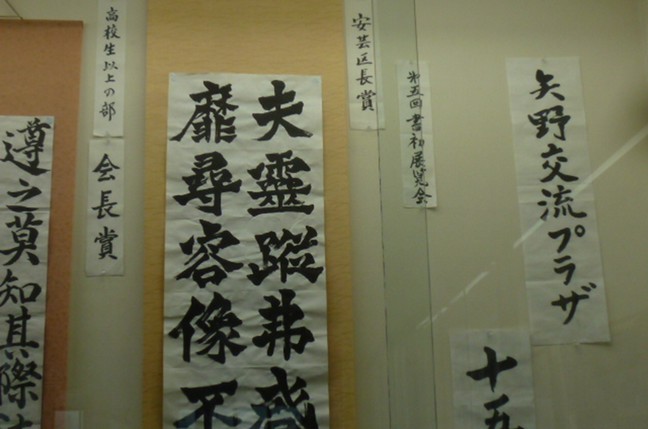 矢野交流プラザ
十五
第五回書初展覧会
安芸区長賞
夫靈蹤弗
靡尋容像不
高校生以上の部
会長賞
遵之莫知其際